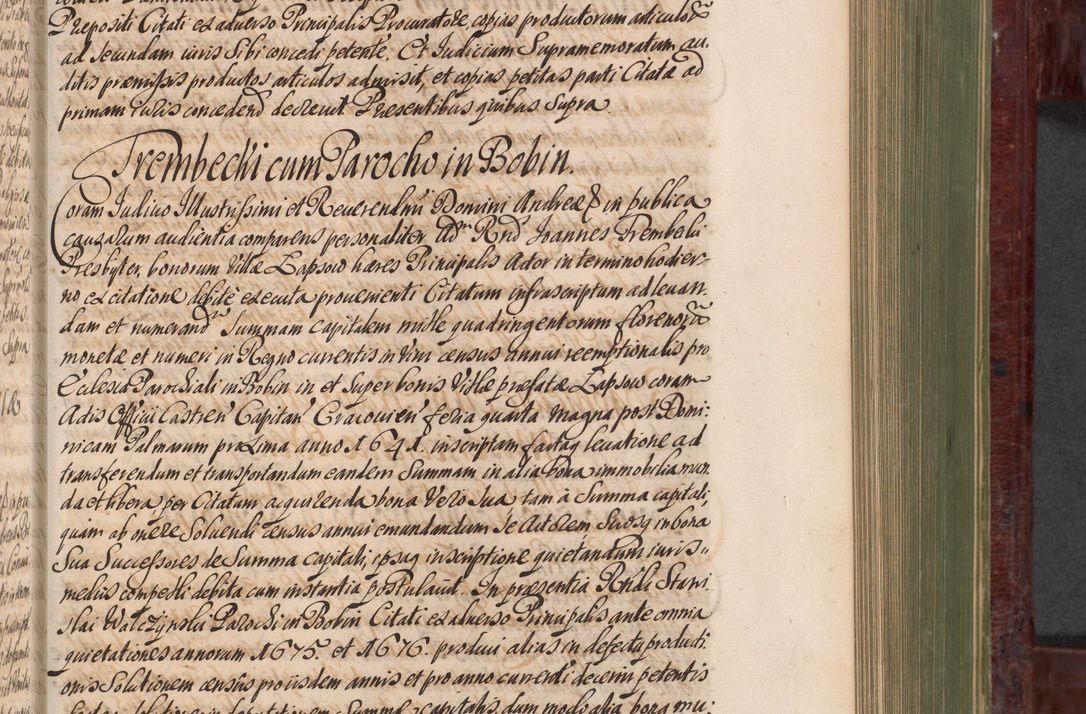 Præpositi Citati ex adverso Principalis Procuratore, copias productorum articulorũ
ad secundam iuris sibi concedi petente. Et Iudicium Supramemoratum au-
ditis præmissis productos articulos admisit, et copias petitas parti Citatæ ad
primam Iuris concedend decrevit. Præsentibus quibus supra.
Trembecki cum Parocho in Bobin.
Coram Iudicio Illustrissimi et Reverendmi Domini Andreæ &c in publica
causarum audientia comparens personaliter Adm Rnd Joannes Trembecki
Presbyter, bonorum Villæ Lapsow hæres Principalis Actor in termino hodier-
no ex citatione debite executa provenienti Citatum infrascriptum ad levan-
dam et numerandã Summam capitalem mille quadringentorum florenorũ
monetæ et numeri in Regno currentis in vim census annui reemptionalis pro
Ecclesia Parochiali in Bobin in et super bonis Villæ præfatæ Lapsow coram
Actis Officii Castren Capitan Cracovien feria quarta magna post Domi-
nicam Palmarum proxima anno 1641. inscriptam factaq levatione ad
transferendum et transportandum eandem Summam in alia bona immobilia mun-
da et libera per Citatum acquirenda bona vero sua tam à Summa capitali,
quam ab onere solvendi census annui emundandum se Actorem suosq in bona
sua Successores de Summa capitali, ipsaq inscriptione quietandum iuris-
mediis compelli debita cum instantia postulavit. In præsentia Rndi Stani-
slai Walczynski Parochi in Bobin Citati ex adverso Principalis ante omnia
quietationes annorum 1675. et 1676. produci alias in defectu producti-
onis Solutionem census pro iisdem annis et pro anno currenti decerni petentis
capitalis, dum modo alia bona mu-